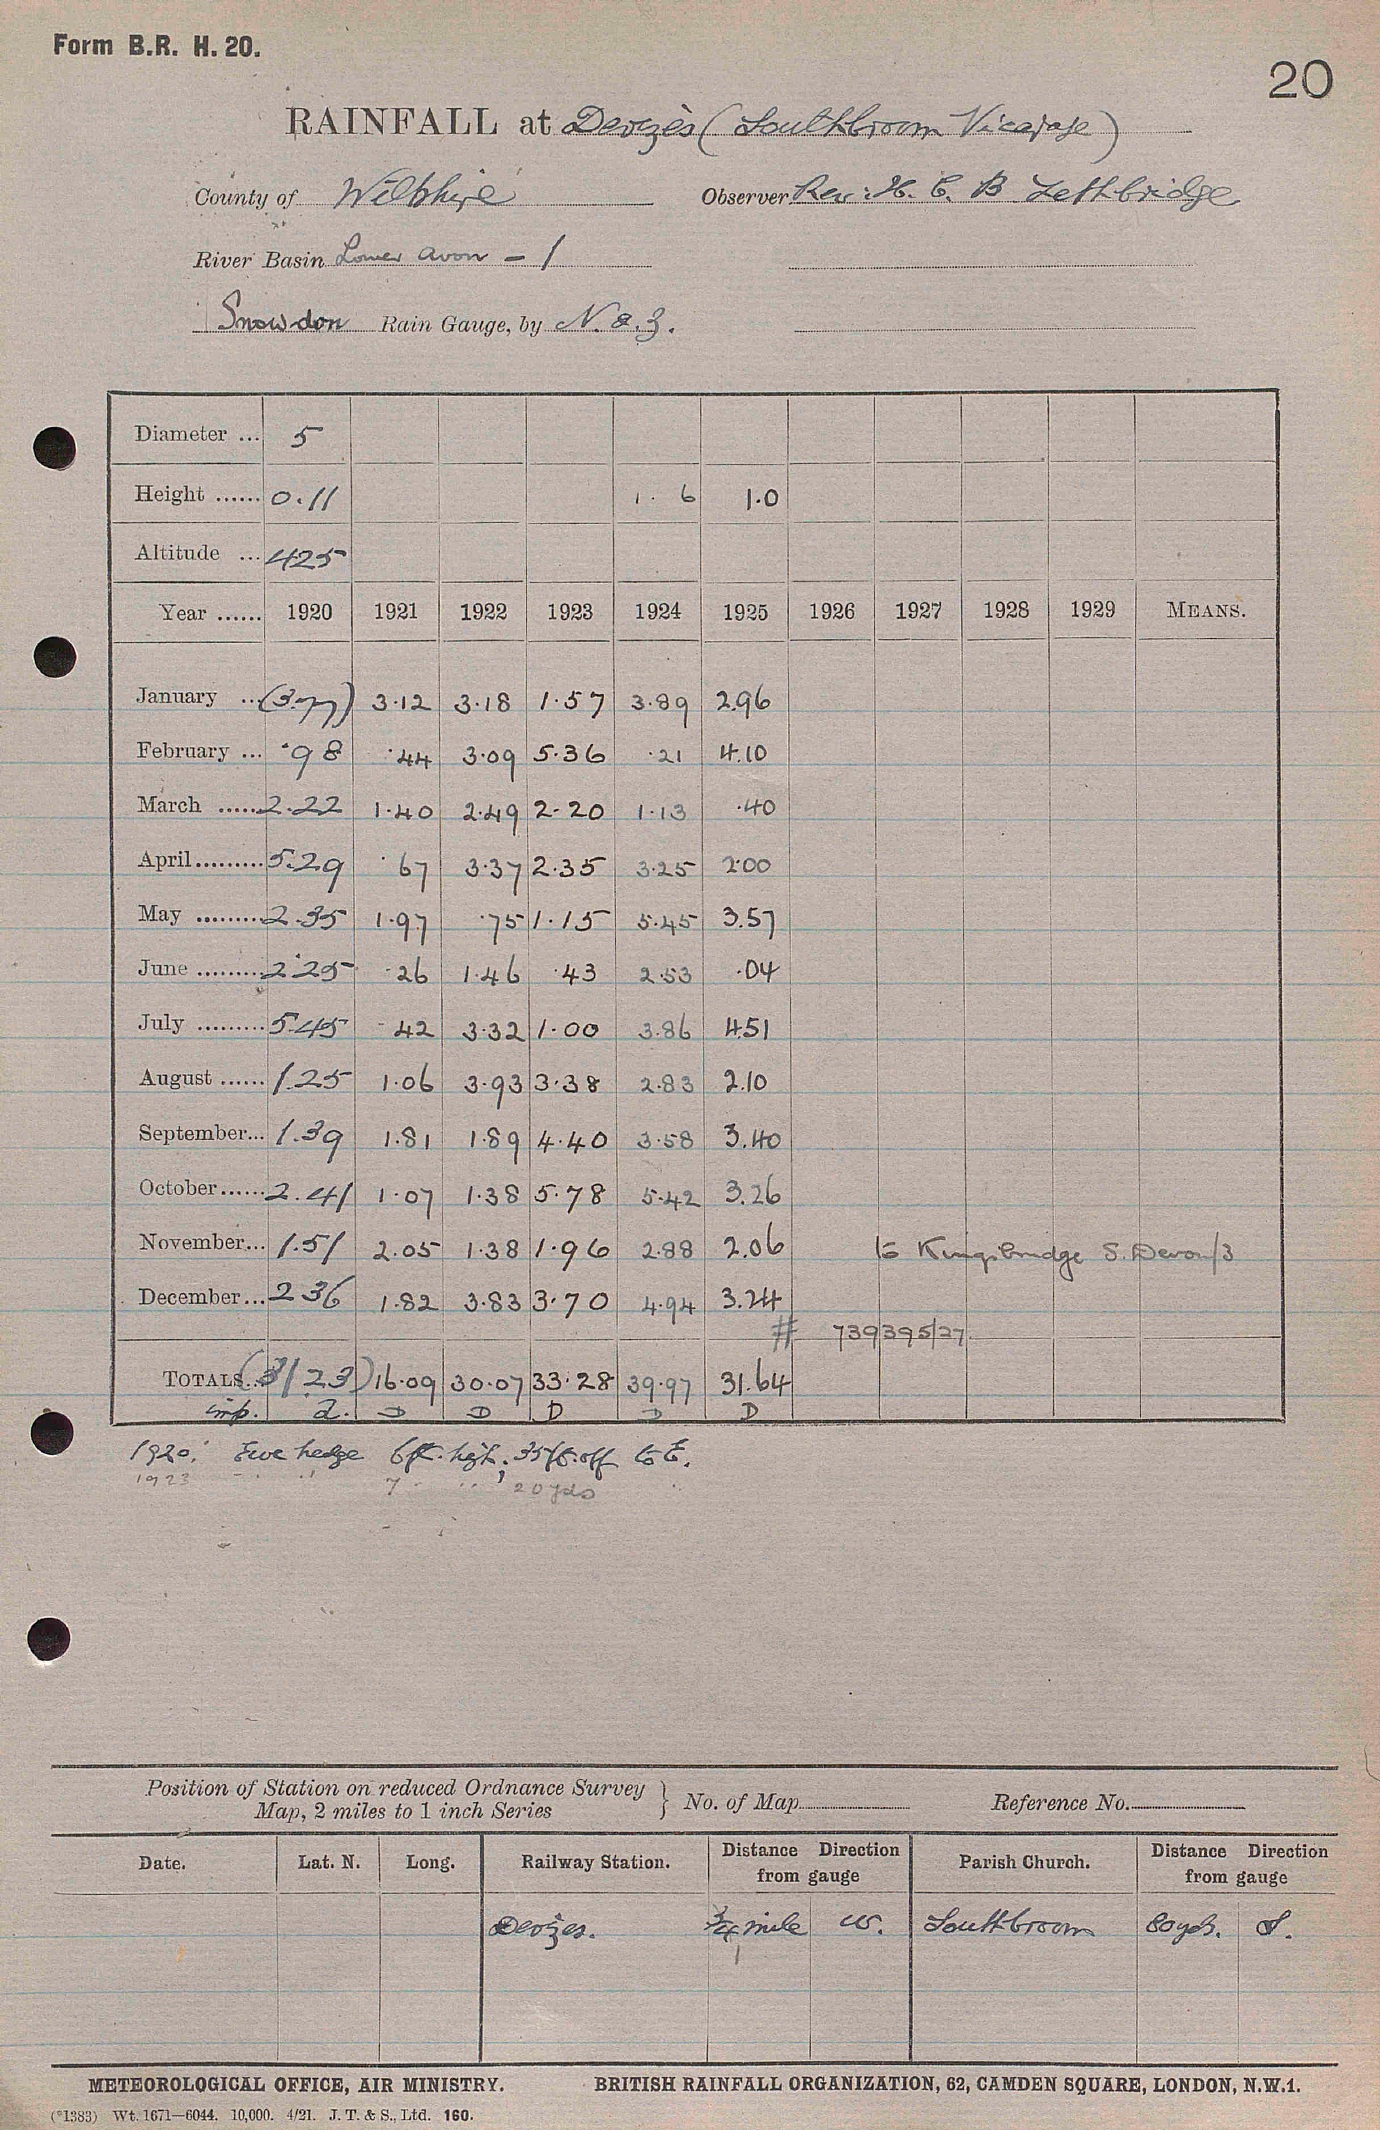 Form B.R. H. 20.
20
RAINFALL at Devizes (Southbroom Vicarage)
County of Wiltshire Observer Rev: H. C. B Lethbridge
River Basin Lower Avon - 1
Snowdon Rain Gauge, by N. & Z.
Diameter ... 5
Height ...... 0.11 1. 6 1.0
Altitude ... 425
Year ...... 1920 1921 1922 1923 1924 1925 1926 1927 1928 1929 MEANS.
January ... (3.77) 3.12 3.18 1.57 3.89 2.96
February ... .98 .44 3.09 5.36 .21 4.10
March ...... 2.22 1.40 2.49 2.20 1.13 .40
April ......... 5.29 .67 3.37 2.35 3.25 2.00
May ......... 2.35 1.97 .75 1.15 5.45 3.57
June ......... 2.25 .26 1.46 .43 2.53 .04
July ......... 5.45 .42 3.32 1.00 3.86 4.51
August ...... 1.25 1.06 3.93 3.38 2.83 2.10
September... 1.39 1.81 1.89 4.40 3.58 3.40
October ...... 2.41 1.07 1.38 5.78 5.42 3.26
November... 1.51 2.05 1.38 1.96 2.88 2.06 to Kingsbridge S. Devon/3
December... 2 36 1.82 3.83 3.70 4.94 3.24
# 739395/27
TOTALS... (31 23) 16.09 30.07 33.28 39.97 31.64
imp. D. D D D D D
1920. Ewe hedge 6ft. high, 35ft. off to E.
1923 " " 7 " " , 20 yds "
Position of Station on reduced Ordnance Survey
Map, 2 miles to 1 inch Series } No. of Map Reference No.
Date. Lat. N. Long. Railway Station. Distance Direction from gauge Parish Church. Distance Direction from gauge
Devizes. 3/4 mile W. Southbroom 80 yds. S.
METEOROLOGICAL OFFICE, AIR MINISTRY. BRITISH RAINFALL ORGANIZATION, 62, CAMDEN SQUARE, LONDON, N.W.1.
(*1383) Wt. 1671—6044. 10,000. 4/21. J. T. & S., Ltd. 160.